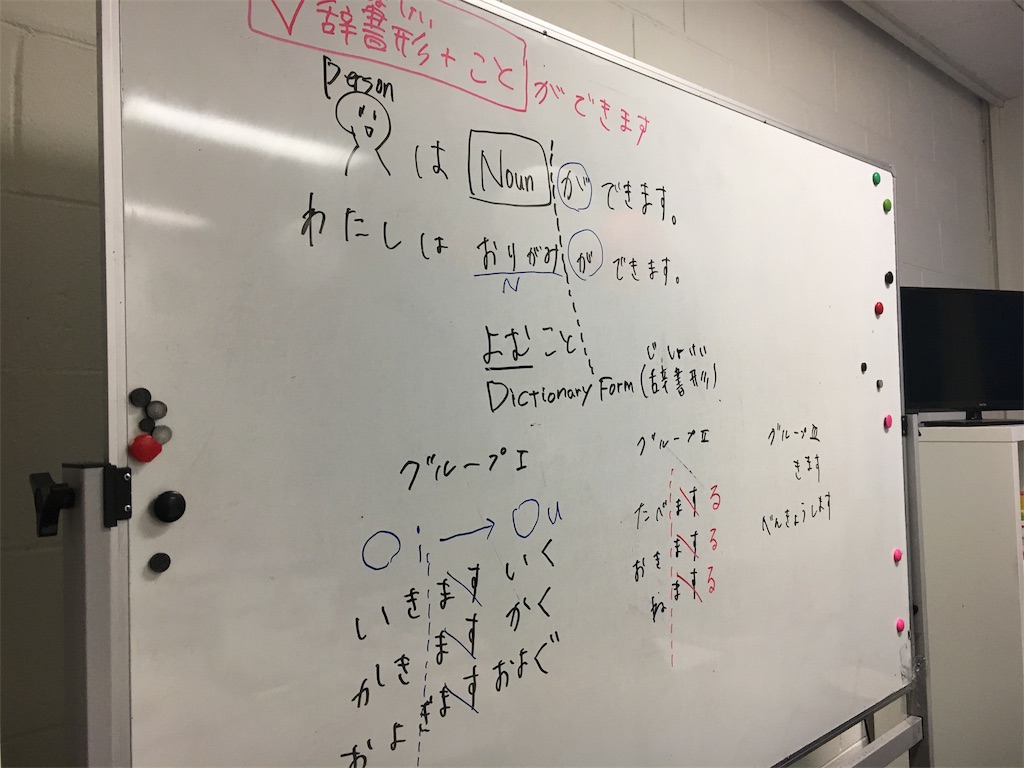 けい
V辞書形+ことができます
person
は Noun が できます。
わたしは おりがみ が できます。
N
よむこと
じしょけい
Dictionary Form (辞書形)
グループI
i → u
いきます いく
かきます かく
およぎます およぐ
グループII
たべます る
おきます る
ねます る
グループIII
きます
べんきょうします